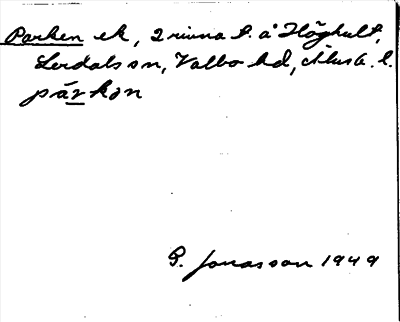 Parken ek, 2 rivna t. å Höghult,
Lerdals sn, Valbo hd, Älvsb. l.
pårkən
G. Jonasson 1949